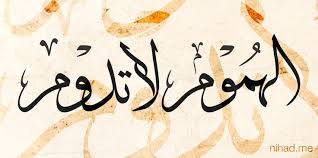 الهُمُوم لا تدوم
nihad.me